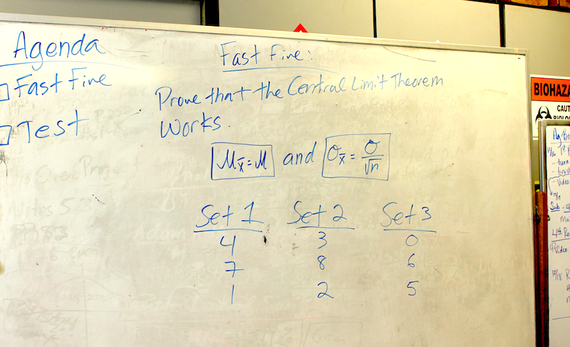 Agenda
Fast Five
Test
Fast Five:
Prove that the Central Limit Theorem
Works.
μx̄ = μ and σx̄ = σ/√n
Set 1 Set 2 Set 3
4 3 0
7 8 6
1 2 5
BIOHAZA
CAUT